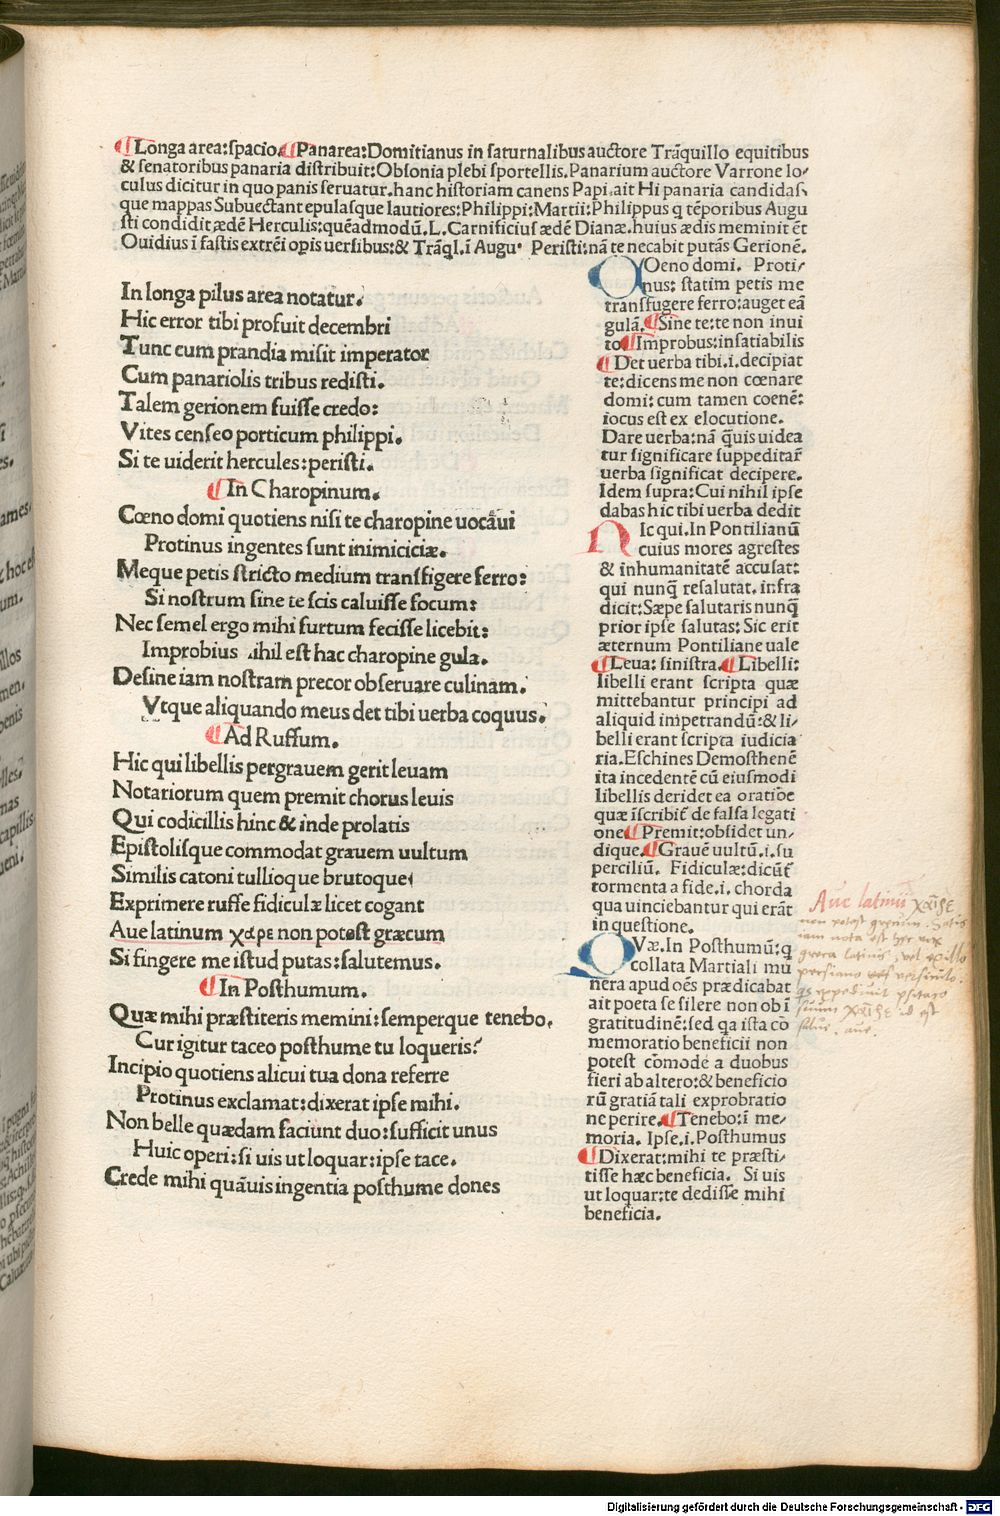 ¶Longa area:ſpacio.¶Panarea:Domitianus in ſaturnalibus auctore Trāquillo equitibus
& ſenatoribus panaria diſtribuit:Obſonia plebi ſportellis.Panarium auctore Varrone lo/
culus dicitur in quo panis ſeruatur.hanc hiſtoriam canens Papi.ait Hi panaria candidaſ.
que mappas Subuectant epulaſque lautiores:Philippi:Martii:Philippus q tēporibus Augu
ſti condidit ædē Herculis:quēadmodū.L.Carnificiuſ ædē Dianæ.huius ædis meminit ēt
Ouidius ī faſtis extrēi opis uerſibus:& Trāql.ī Augu. Periſti:nā te necabit putās Gerionē.
In longa pilus area notatur.
Hic error tibi profuit decembri
Tunc cum prandia miſit imperator
Cum panariolis tribus rediſti.
Talem gerionem fuiſſe credo:
Vites cenſeo porticum philippi.
Si te uiderit hercules:periſti.
¶In Charopinum.
Cœno domi quotiens niſi te charopine uocaui
Protinus ingentes ſunt inimiciciæ.
Meque petis ſtricto medium tranſfigere ferro:
Si noſtrum ſine te ſcis caluiſſe focum:
Nec ſemel ergo mihi furtum feciſſe licebit:
Improbius ihil eſt hac charopine gula.
Deſine iam noſtram precor obſeruare culinam.
Vtque aliquando meus det tibi uerba coquus.
¶Ad Ruffum.
Hic qui libellis pergrauem gerit leuam
Notariorum quem premit chorus leuis
Qui codicillis hinc & inde prolatis
Epiſtoliſque commodat grauem uultum
Similis catoni tullioque brutoque
Exprimere ruffe fidiculæ licet cogant
Aue latinum χαρε non poteſt græcum
Si fingere me iſtud putas:ſalutemus.
¶In Poſthumum.
Quæ mihi præſtiteris memini:ſemperque tenebo.
Cur igitur taceo poſthume tu loqueris:
Incipio quotiens alicui tua dona referre
Protinus exclamat:dixerat ipſe mihi.
Non belle quædam faciunt duo:ſufficit unus
Huic operi:ſi uis ut loquar:ipſe tace.
Crede mihi quāuis ingentia poſthume dones
COeno domi. Proti/
nus: ſtatim petis me
tranſfugere ferro:auget eā
gulā.¶Sine te:te non inui
to¶Improbus:inſatiabilis
¶Det uerba tibi.i.decipiat
te:dicens me non cœnare
domi: cum tamen coenē:
iocus eſt ex elocutione.
Dare uerba:nā q̄uis uidea
tur ſignificare ſuppeditar̄
uerba ſignificat decipere.
Idem ſupra:Cui nihil ipſe
dabas hic tibi uerba dedit
HIc qui.In Pontilianū
cuius mores agreſtes
& inhumanitatē accuſat:
qui nunq̄ reſalutat. infra
dicit:Sæpe ſalutaris nunq̄
prior ipſe ſalutas: Sic erit
æternum Pontiliane uale
¶Leua: ſiniſtra.¶Libelli:
libelli erant ſcripta quæ
mittebantur principi ad
aliquid impetrandū:& li/
belli erant ſcripta iudicia
ria.Eſchines Demoſthenē
ita incedentē cū eiuſmodi
libellis deridet ea oratiōe
quæ īſcribit̄ de falſa legati
one¶Premit:obſidet un/
dique.¶Grauē uultū.i.ſu
perciliū. Fidiculæ:dicūt̄
tormenta a fide.i. chorda
qua uinciebantur qui erāt
in queſtione.
QVæ.In Poſthumū:q
collata Martiali mu
nera apud oēs prædicabat
ait poeta ſe ſilere non ob ī
gratitudinē:ſed qa iſta cō
memoratio beneficii non
poteſt cōmode a duobus
fieri ab altero:& beneficio
rū gratiā tali exprobratio
ne perire.¶Tenebo:ī me/
moria. Ipſe.i.Poſthumus
¶Dixerat:mihi te præſti/
tiſſe hæc beneficia. Si uis
ut loquar:te dediſſe mihi
beneficia.
Aue latinū χαῖρε
non poteſt grecum. Satis
iam nota eſt hec vox
greca latinis, vel ex illo
perſiano verſiculo.
Quis expediuit pſitaco
ſuum χαῖρε id eſt
ſalue. aue.
Digitalisierung gefördert durch die Deutsche Forschungsgemeinschaft - DFG